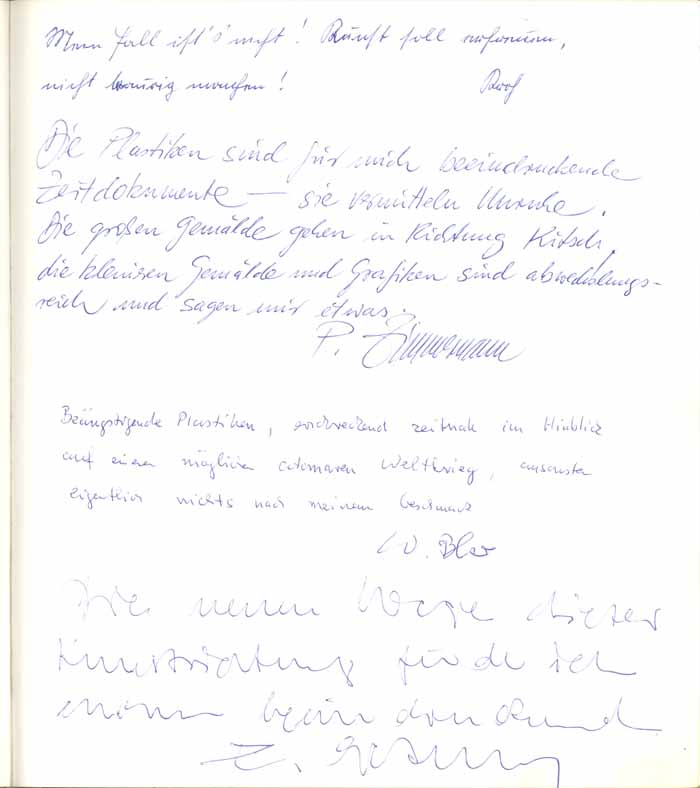 Mein Fall ist's nicht! Kunst soll erfreuen,
nicht traurig machen!
Die Plastiken sind für mich beeindruckende
Zeitdokumente — sie vermitteln Unruhe.
Die großen Gemälde gehen in Richtung Kitsch,
die kleineren Gemälde und Grafiken sind abwechslungs-
reich und sagen mir etwas.
P. Zimmermann
Beängstigende Plastiken, erschreckend zeitnah im Hinblick
auf einen möglichen atomaren Weltkrieg, ansonsten
eigentlich nichts nach meinem Geschmack
W.
Die neuen Wege dieser
Kunstrichtung finde ich
enorm beeindruckend